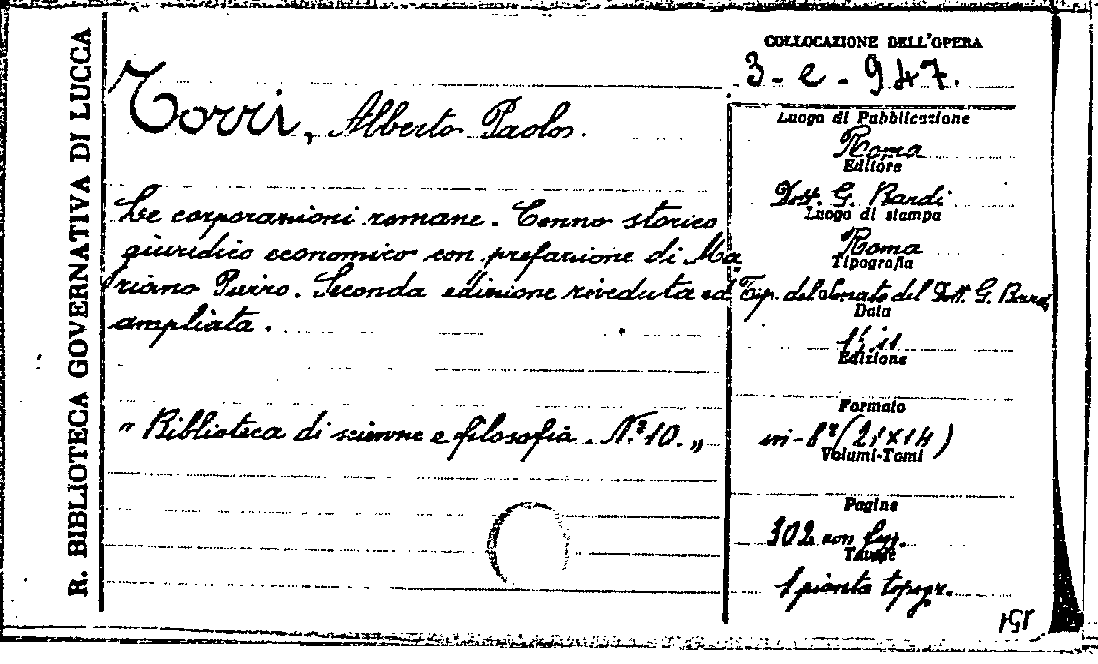 R. BIBLIOTECA GOVERNATIVA DI LUCCA
Torri, Alberto Paolo.
Le corporazioni romane. Cenno storico
giuridico economico con prefazione di Ma
riano Pierro. Seconda edizione riveduta ed
ampliata.
"Biblioteca di scienze e filosofia. N.º 10."
COLLOCAZIONE DELL'OPERA
3-e-947.
Luogo di Pubblicazione
Roma
Editore
Dott. G. Bardi
Luogo di stampa
Roma
Tipografia
Tip. del Senato del Dott. G. Bardi
Data
Edizione
Formato
in-8º (21x14)
Volumi-Tomi
Pagine
302 con
Tavole
1 pianta topogr.
151